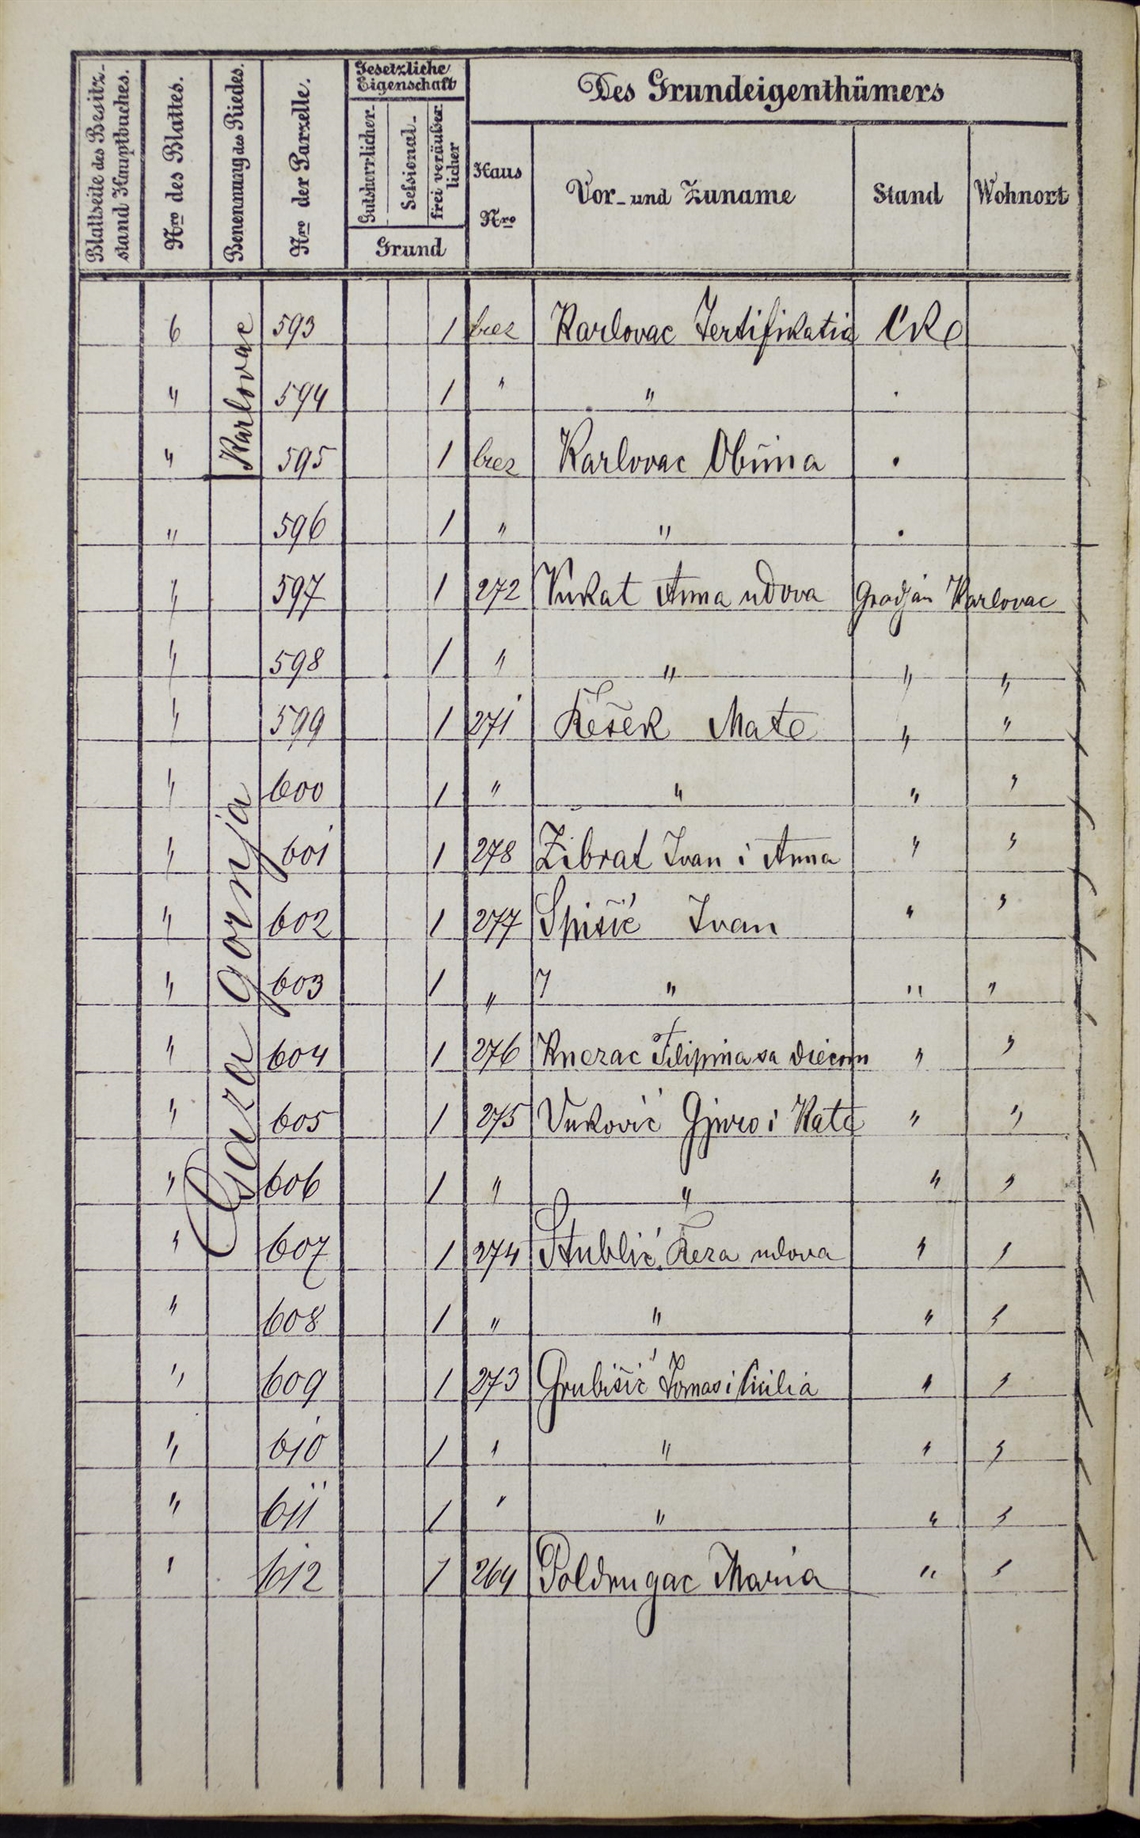 Blattseite des Besitz-stand Hauptbuches. | Nro des Blattes. | Benennung des Riedes. | Nro der Parzelle. | Gesetzliche Eigenschaft | Des Grundeigenthümers
Gutsherrlicher- | Sessional- | frei veräußerlicher | Grund | Haus Nro | Vor- und Zuname | Stand | Wohnort
Karlovac
6 593 1 brez Karlovac Fertifikatia
" 594 1 " " .
" 595 1 brez Karlovac Obćina .
" 596 1 " " .
" 597 1 272 Vukat Anna udova Gradjan Karlovac
" 598 1 " " " "
" 599 1 271 Kešek Mate " "
" 600 1 " " " "
gornja
" 601 1 278 Žibrat Ivan i Anna " "
" 602 1 277 Spišić Ivan " "
" 603 1 " " " "
" 604 1 276 Knezac Filipina sa diecom " "
" 605 1 275 Vuković Gjuro i Kata " "
" 606 1 " " " "
" 607 1 274 Stublić Reza udova " "
" 608 1 " " " "
" 609 1 273 Grubišić Tomas i Cicilia " "
" 610 1 " " " "
" 611 1 " " " "
" 612 1 264 Poldrugac Maria " "